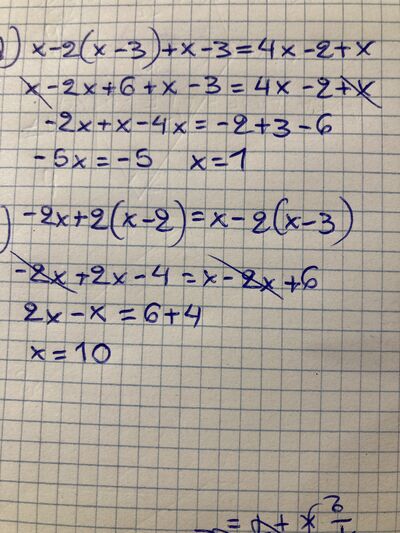 ) x-2(x-3)+x-3=4x-2+x
x-2x+6+x-3=4x-2+x
-2x+x-4x=-2+3-6
-5x=-5 x=1
) -2x+2(x-2)=x-2(x-3)
-2x+2x-4=x-2x+6
2x-x=6+4
x=10